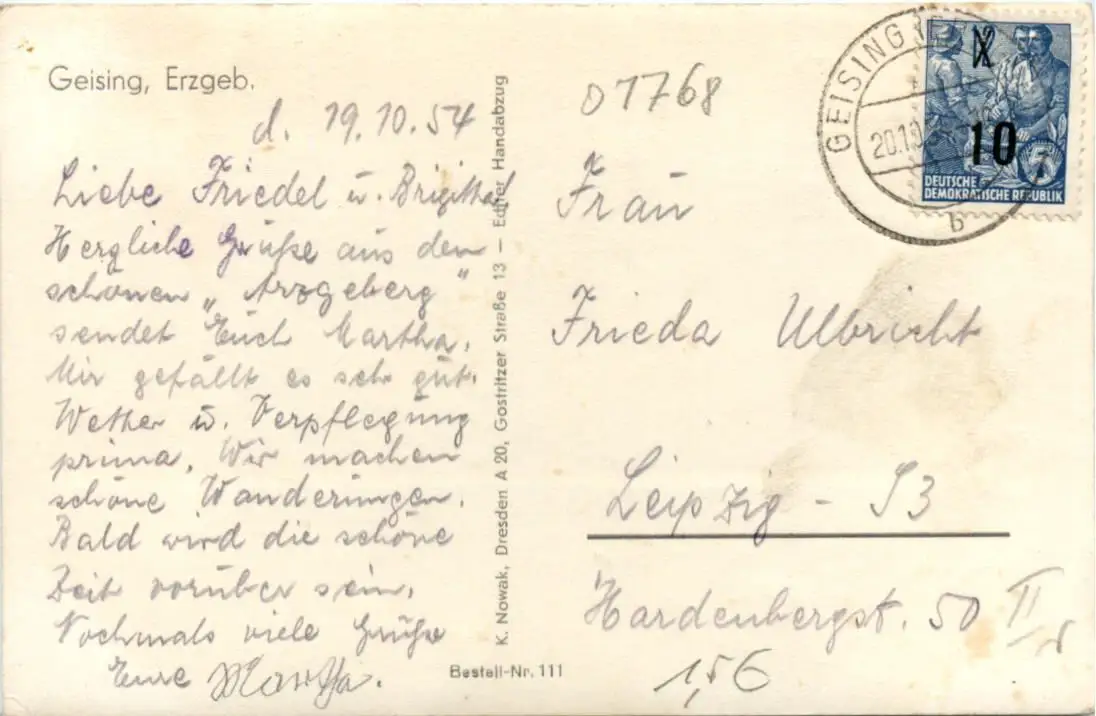 Geising, Erzgeb.
d. 19.10.54
Liebe Friedel u. Brigitha!
Herzliche Grüße aus den
schönen „Arzgeberg"
sendet Euch Martha.
Mir gefällt es sehr gut.
Wetter u. Verpflegung
prima. Wir machen
schöne Wanderungen.
Bald wird die schöne
Zeit vorüber sein.
Nochmals viele Grüße
Eure Martha.
K. Nowak, Dresden A 20, Gostritzer Straße 13 – Echter Handabzug
Bestell-Nr. 111
01768
Frau
Frieda Ulbricht
Leipzig - S3
Hardenbergst. 50 II r
1,56
GEISING
20.10
b
12
10
DEUTSCHE
DEMOKRATISCHE REPUBLIK